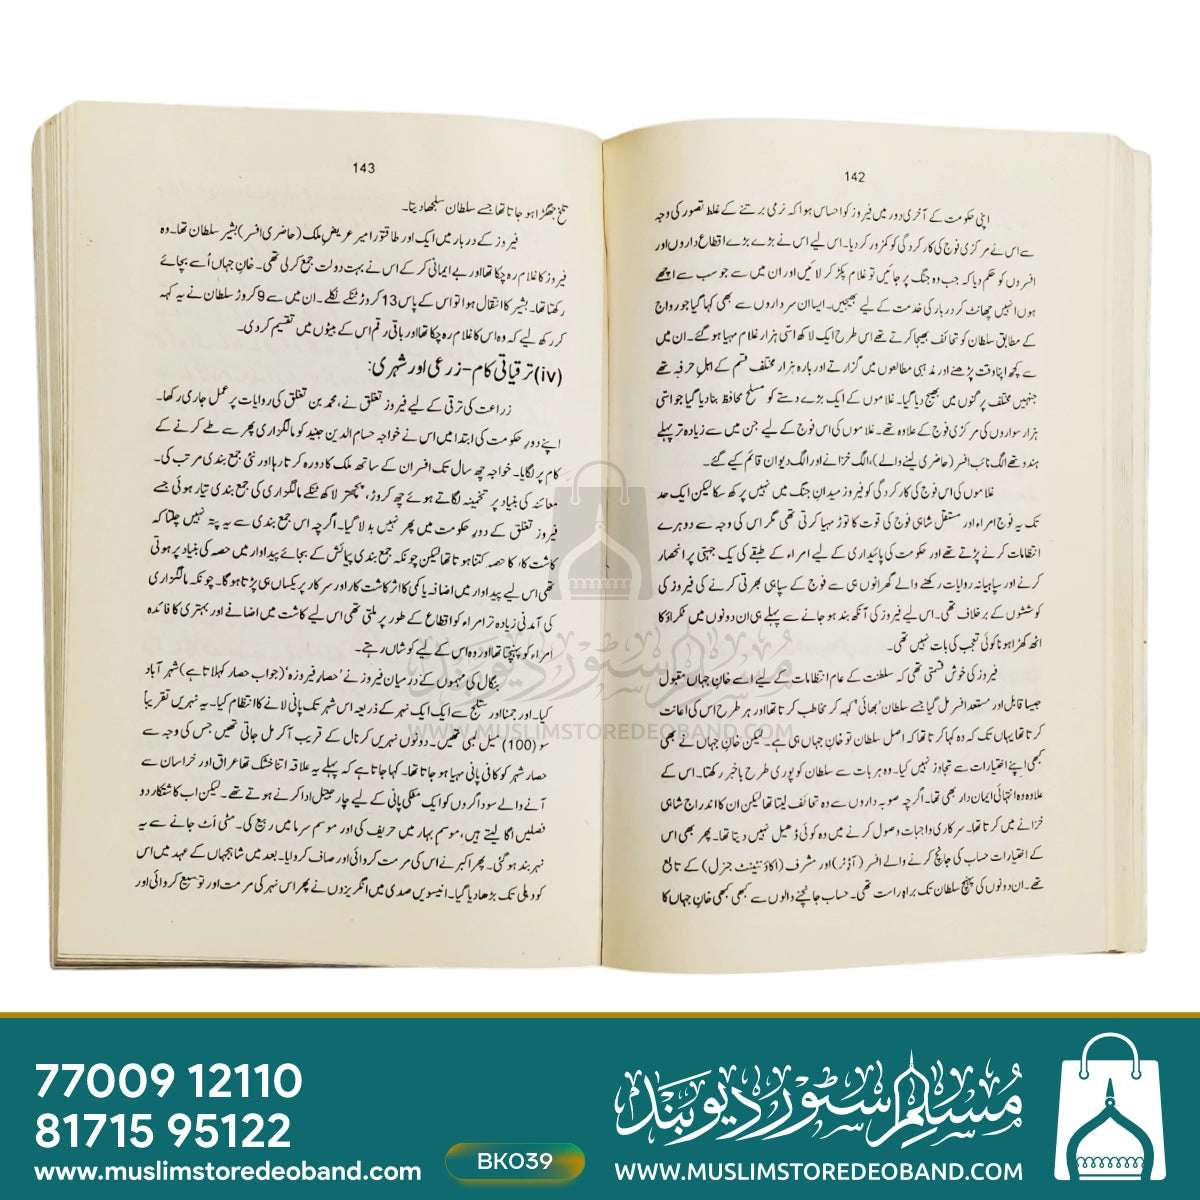 142
اپنی حکومت کے آخری دور میں فیروز کو احساس ہوا کہ نرمی برتنے کے غلط تصور کی وجہ
سے اس نے مرکزی فوج کی کارکردگی کو کمزور کر دیا۔ اس لیے اس نے بڑے بڑے اقطاع داروں اور
افسروں کو حکم دیا کہ جب وہ جنگ پر جائیں تو غلام پکڑ کر لائیں اور ان میں سے جو سب سے اچھے
ہوں انہیں چھانٹ کر دربار کی خدمت کے لیے بھیجیں۔ ایسا ان سرداروں سے بھی کہا گیا جو رواج
کے مطابق سلطان کو تحائف بھیجا کرتے تھے اس طرح ایک لاکھ اسی ہزار غلام مہیا ہو گئے۔ ان میں
سے کچھ اپنا وقت پڑھنے اور مذہبی مطالعوں میں گزارتے اور بارہ ہزار مختلف قسم کے اہل حرفہ تھے
جنہیں مختلف پرگنوں میں بھیج دیا گیا۔ غلاموں کے ایک بڑے دستے کو مسلح محافظ بنا دیا گیا جو اسی
ہزار سواروں کی مرکزی فوج کے علاوہ تھے۔ غلاموں کی اس فوج کے لیے جن میں سے زیادہ تر پہلے
ہندو تھے الگ نائب افسر (حاضری لینے والے)، الگ خزانے اور الگ دیوان قائم کیے گئے۔
غلاموں کی اس فوج کی کارکردگی کو فیروز میدانِ جنگ میں نہیں پرکھ سکا لیکن ایک حد
تک یہ فوج امراء اور مستقل شاہی فوج کی قوت کا توڑ مہیا کرتی تھی مگر اس کی وجہ سے دوہرے
انتظامات کرنے پڑتے تھے اور حکومت کی پائیداری کے لیے امراء کے طبقے کی یک جہتی پر انحصار
کرنے اور سپاہیانہ روایات رکھنے والے گھرانوں ہی سے فوج کے سپاہی بھرتی کرنے کی فیروز کی
کوششوں کے برخلاف تھی۔ اس لیے فیروز کی آنکھ بند ہو جانے سے پہلے ہی ان دونوں میں ٹکراؤ کا
اٹھ کھڑا ہونا کوئی تعجب کی بات نہیں تھی۔
فیروز کی خوش قسمتی تھی کہ سلطنت کے عام انتظامات کے لیے اسے خانِ جہاں مقبول
جیسا قابل اور مستعد افسر مل گیا جسے سلطان 'بھائی' کہہ کر مخاطب کرتا تھا اور ہر طرح اس کی اعانت
کرتا تھا یہاں تک کہ وہ کہا کرتا تھا کہ اصل سلطان تو خانِ جہاں ہی ہے۔ لیکن خانِ جہاں نے بھی
کبھی اپنے اختیارات سے تجاوز نہیں کیا۔ وہ ہر بات سے سلطان کو پوری طرح باخبر رکھتا۔ اس کے
علاوہ وہ انتہائی ایمان دار بھی تھا۔ اگرچہ صوبہ داروں سے وہ تحائف لیتا تھا لیکن ان کا اندراج شاہی
خزانے میں کرتا تھا۔ سرکاری واجبات وصول کرنے میں وہ کوئی ڈھیل نہیں دیتا تھا۔ پھر بھی اس
کے اختیارات حساب کی جانچ کرنے والے افسر (آڈیٹر) اور مشرف (اکاؤنٹینٹ جنرل) کے تابع
تھے۔ ان دونوں کی پہنچ سلطان تک براہِ راست تھی۔ حساب جانچنے والوں سے کبھی کبھی خانِ جہاں کا
143
تلخ جھگڑا ہو جاتا تھا جسے سلطان سلجھا دیتا۔
فیروز کے دربار میں ایک اور طاقتور امیر عریضِ ملک (حاضری افسر) بشیر سلطان تھا۔ وہ
فیروز کا غلام رہ چکا تھا اور بے ایمانی کر کے اس نے بہت دولت جمع کر لی تھی۔ خانِ جہاں اُسے بچائے
رکھتا تھا۔ بشیر کا انتقال ہوا تو اس کے پاس 13 کروڑ ٹنکے نکلے۔ ان میں سے 9 کروڑ سلطان نے یہ کہہ
کر رکھ لیے کہ وہ اس کا غلام رہ چکا تھا اور باقی رقم اس کے بیٹوں میں تقسیم کر دی۔
(iv) ترقیاتی کام – زرعی اور شہری:
زراعت کی ترقی کے لیے فیروز تغلق نے، محمد بن تغلق کی روایات پر عمل جاری رکھا۔
اپنے دورِ حکومت کی ابتدا میں اس نے خواجہ حسام الدین جنید کو مالگزاری پھر سے طے کرنے کے
کام پر لگایا۔ خواجہ چھ سال تک افسران کے ساتھ ملک کا دورہ کرتا رہا اور نئی جمع بندی مرتب کی۔
معائنہ کی بنیاد پر تخمینہ لگاتے ہوئے چھ کروڑ، پچھتر لاکھ ٹنکے مالگزاری کی جمع بندی تیار ہوئی جسے
فیروز تغلق کے دورِ حکومت میں پھر نہیں بدلا گیا۔ اگرچہ اس جمع بندی سے یہ پتہ نہیں چلتا کہ
کاشت کار کا حصہ کتنا ہوتا تھا لیکن چونکہ جمع بندی پیمائش کے بجائے پیداوار میں حصہ کی بنیاد پر ہوتی
تھی اس لیے پیداوار میں اضافہ یا کمی کا اثر کاشت کار اور سرکار پر یکساں ہی پڑتا ہوگا۔ چونکہ مالگزاری
کی آمدنی زیادہ تر امراء کو اقطاع کے طور پر ملتی تھی اس لیے کاشت میں اضافے اور بہتری کا فائدہ
امراء کو پہنچتا تھا اور وہ اس کے لیے کوشاں رہتے۔
بنگال کی مہموں کے درمیان فیروز نے 'حصارِ فیروزہ' (جو اب حصار کہلاتا ہے) شہر آباد
کیا۔ اور جمنا اور ستلج سے ایک ایک نہر کے ذریعہ اس شہر تک پانی لانے کا انتظام کیا۔ یہ نہریں تقریباً
سو (100) میل لمبی تھیں۔ دونوں نہریں کرنال کے قریب آ کر مل جاتی تھیں جس کی وجہ سے
حصار شہر کو کافی پانی مہیا ہو جاتا تھا۔ کہا جاتا ہے کہ پہلے یہ علاقہ اتنا خشک تھا عراق اور خراسان سے
آنے والے سوداگروں کو ایک مٹکی پانی کے لیے چار جیتل ادا کرنے ہوتے تھے۔ لیکن اب کاشتکار دو
فصلیں اگا لیتے ہیں، موسمِ بہار میں حریف کی اور موسمِ سرما میں ربیع کی۔ مٹی اَٹ جانے سے یہ
نہر بند ہو گئی۔ پھر اکبر نے اس کی مرمت کروائی اور صاف کروایا۔ بعد میں شاہجہاں کے عہد میں اس
کو دہلی تک بڑھا دیا گیا۔ انیسویں صدی میں انگریزوں نے پھر اس نہر کی مرمت اور توسیع کروائی اور
مسلم سٹور دیوبند
WWW.MUSLIMSTOREDEOBAND.COM
77009 12110
81715 95122
www.muslimstoredeoband.com
BK039
مسلم سٹور دیوبند
WWW.MUSLIMSTOREDEOBAND.COM